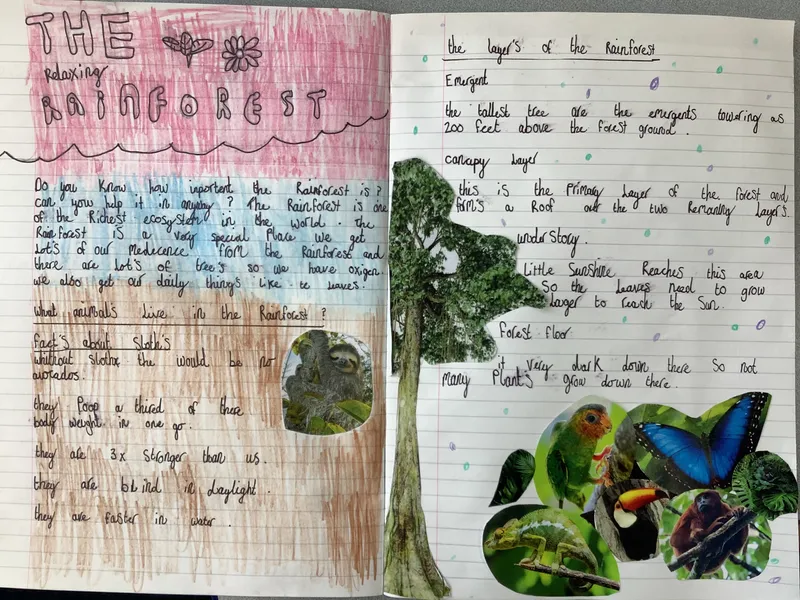 THE
Relaxing
RAINFOREST
Do you Know how inportent the Rainforest is?
can you help it in anyway? The Rainforest is one
of the Richest ecosystem in the world. the
Rainforest is a very special Place we get
Lot's of our Medecence from the Rainforest and
there are Lot's of tree's so we have oxigen.
we also get our daily thing's Like te Leaves.
what animal's live in the Rainforest?
Fact's about Sloth's
whithout Slothx the would be no
avocados.
they Poop a thired of there
body weight in one go.
they are 3x Stronger than us.
they are blind in daylight.
they are faster in water.
the layer's of the Rainforest
Emergent
the tallest tree are the emergents towering as
200 feet above the forest ground.
canopy Layer
this is the Primary Layer of the forest and
form's a Roof over the two Remaning Layer's.
understory.
Little Sunshine Reaches this area
So the Leaves need to grow
Larger to reach the Sun.
Forest floor
it very dark down there So not
Many Plant's grow down there.